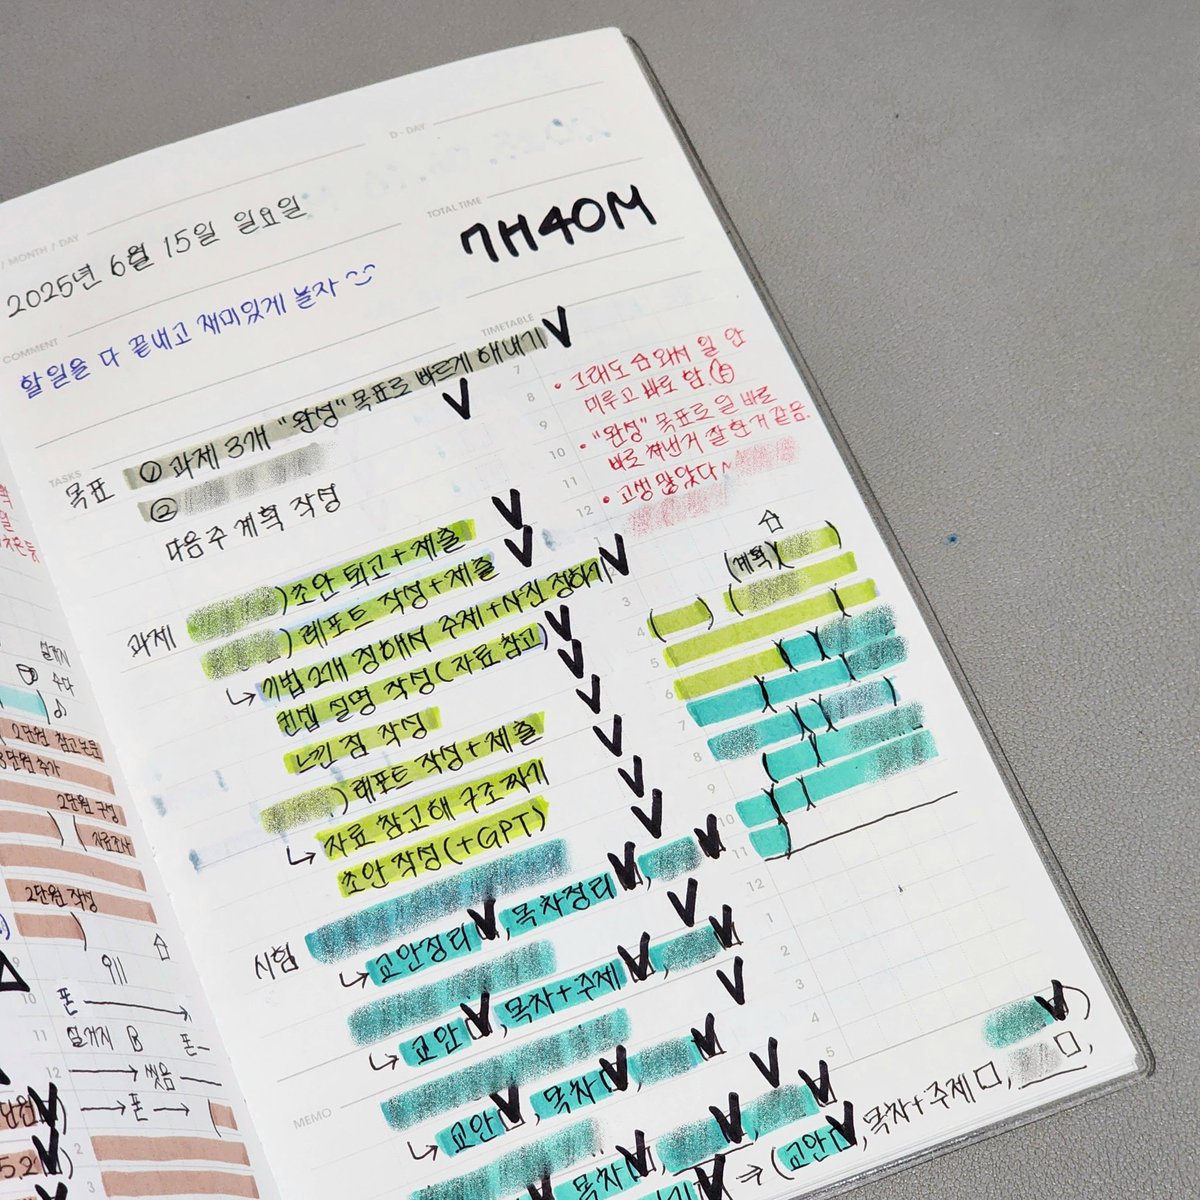 / MONTH / DAY
2025년 6월 15일 일요일
D-DAY
TOTAL TIME
7H40M
COMMENT
할일을 다 끝내고 재미있게 놀자
TASKS
목표 ① 과제 3개 "완성" 목표로 빠르게 해내기 V
② V
다음주 계획 작성
과제 )초안 퇴고+제출 V
)레포트 작성+제출 V
↳ 기법 2개 정해서 주제+사진 정하기 V
컨셉 설명 작성(자료 참고) V
느낀 점 작성 V
)레포트 작성+제출 V
↳ 자료 참고해 구조 짜기 V
초안 작성(+GPT) V
시험 V
↳ 교안정리 V, 목차정리 V, V
↳ 교안 V, 목차+주제 V, V
↳ 교안 V, 목차 V, V
목차
⇒ (교안 V, 목차+주제 □, □,
MEMO
TIMETABLE
• 그래도 와서 일 안
미루고 바로 함.
• "완성" 목표로 일 바로
바로 쳐낸거 잘한거 같음.
• 고생 많았다~
(계획)
7
8
9
10
11
12
1
3
4
5
6
7
8
9
10
11
12
1
2
3
4
5
설거지
수다
2단원 참고논문
3단원 추가
2단원 구성
자료조사
2단원 작성
911
폰
설거지
폰
씻음
폰
9
10
11
12
2
3